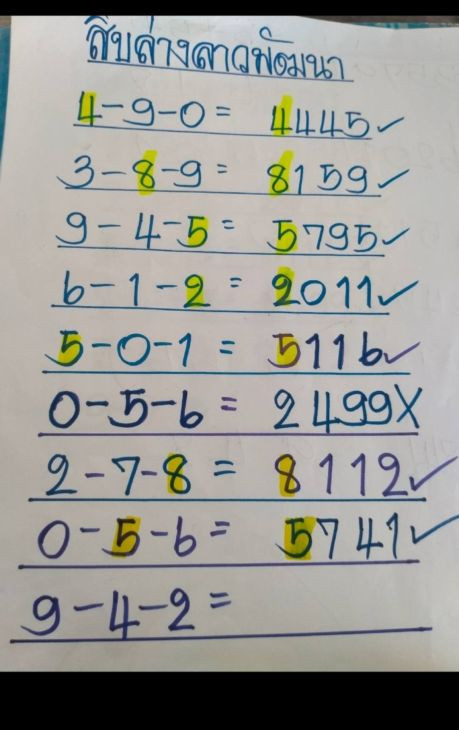 สิบล่างลาวพัฒนา
4-9-0= 4445✓
3-8-9= 8159✓
9-4-5= 5795✓
6-1-2= 2011✓
5-0-1= 5116✓
0-5-6= 2499X
2-7-8= 8112✓
0-5-6= 5741✓
9-4-2=